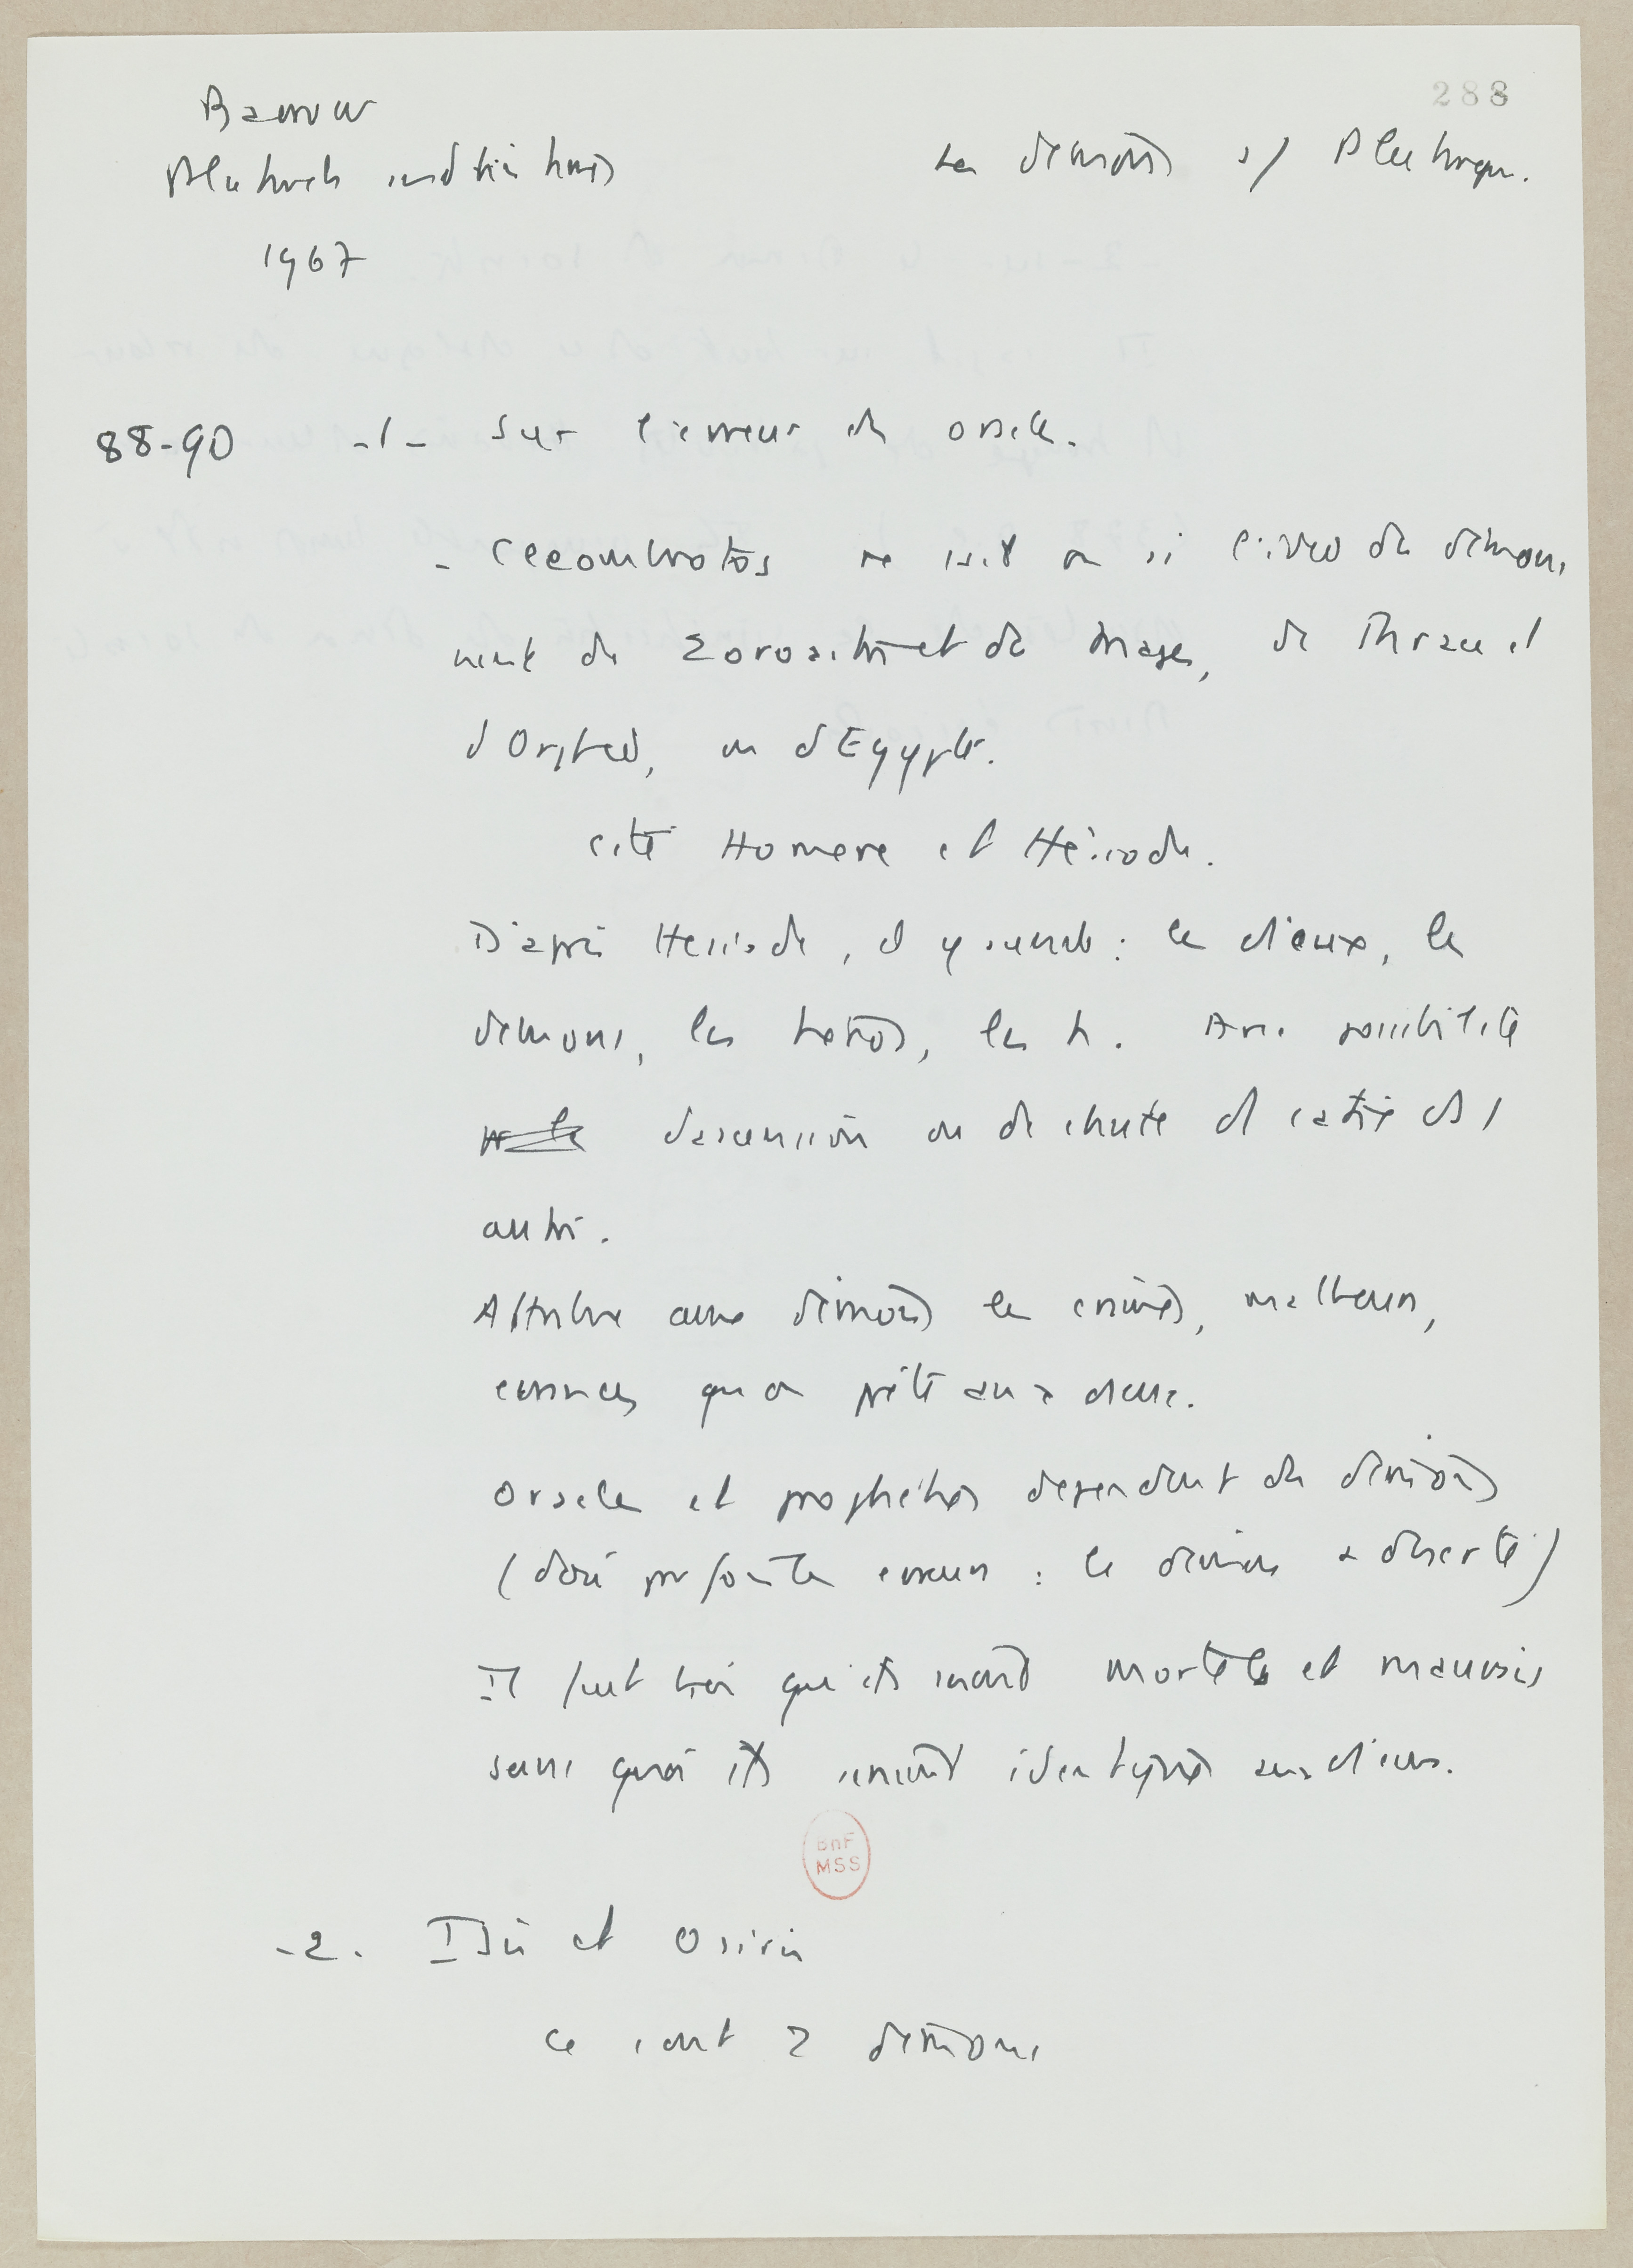 288
Barrow
Plutarch and his times
1967
Les démons s/ Plutarque.
88-90 -1- Sur l'erreur des oracles.
- Cleombrotos ne sait pas si l'idée des démons
vient de Zoroastre et des Mages, de Thrace et
d'Orphée, ou d'Egypte.
cite Homere et Hésiode.
D'après Hesiode, il y aurait : les dieux, les
démons, les heros, les h. Avec possibilité
d'ascension ou de chute de l'un à l'autre
autre.
Attribue aux démons les crimes, malheurs,
erreurs qu'on prête aux dieux.
Oracles et prophéties dependent des démons
(d'où parfois les erreurs : le démon a déserté)
Il faut bien qu'ils soient mortels et mauvais
sans quoi ils seraient identiques aux dieux.
BnF
MSS
-2. Isis et Osiris
ce sont 2 démons